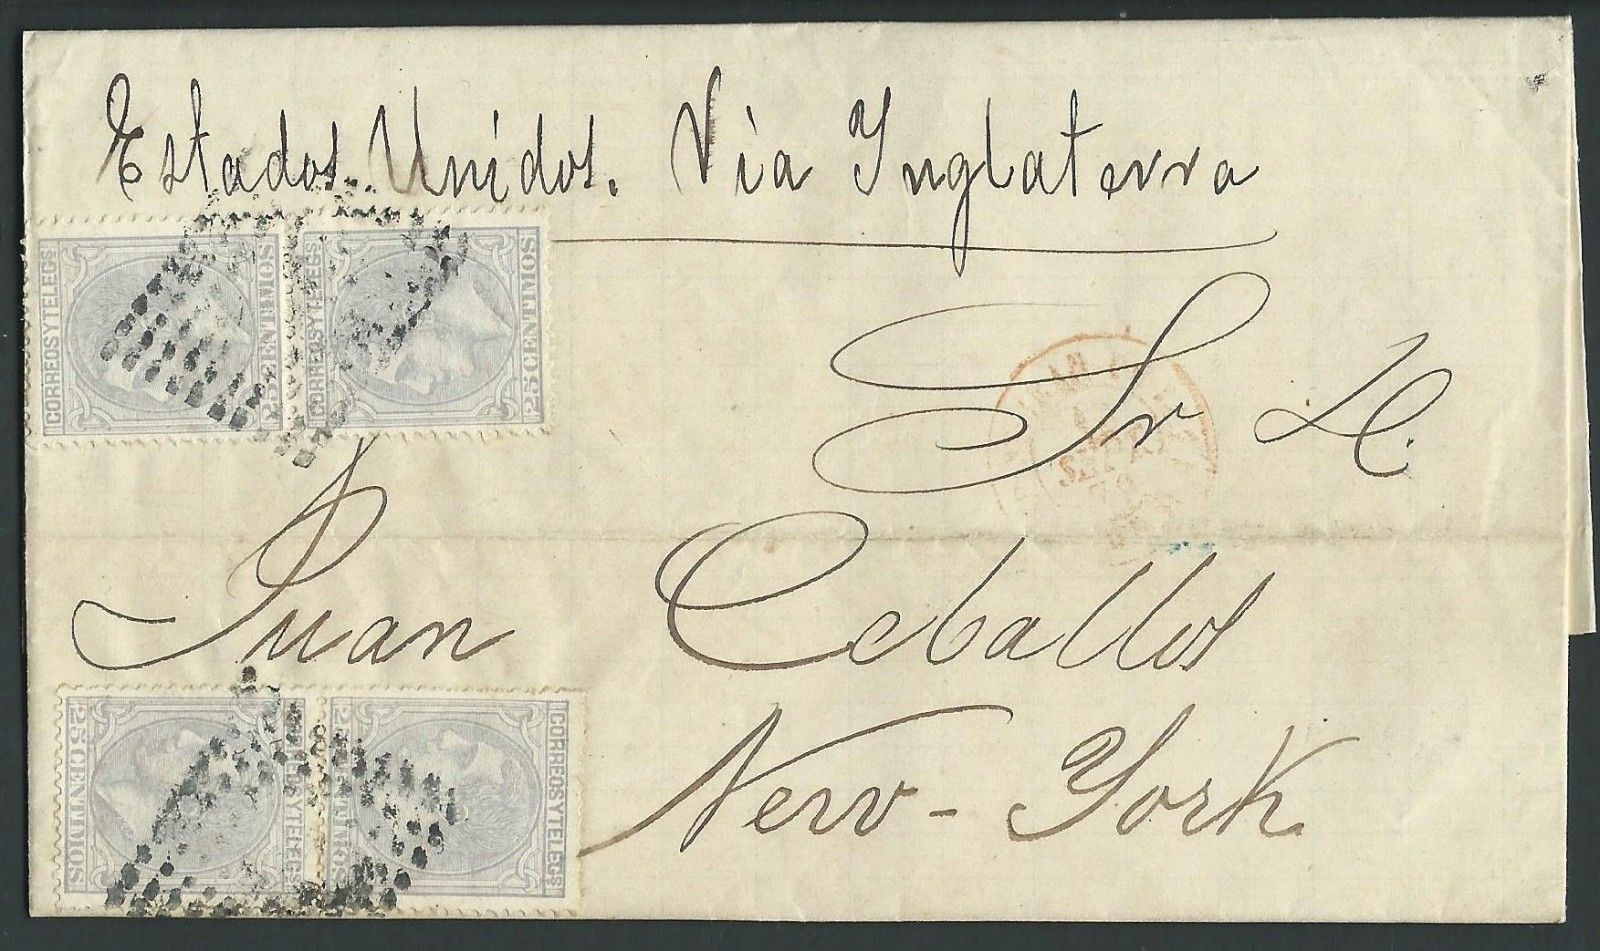 Estados Unidos. Via Inglaterra
CORREOS Y TELEGS 25 CENTIMOS
CORREOS Y TELEGS 25 CENTIMOS
Sr D.
Juan Ceballos
New-York
25 CENTIMOS CORREOS Y TELEGS
25 CENTIMOS CORREOS Y TELEGS